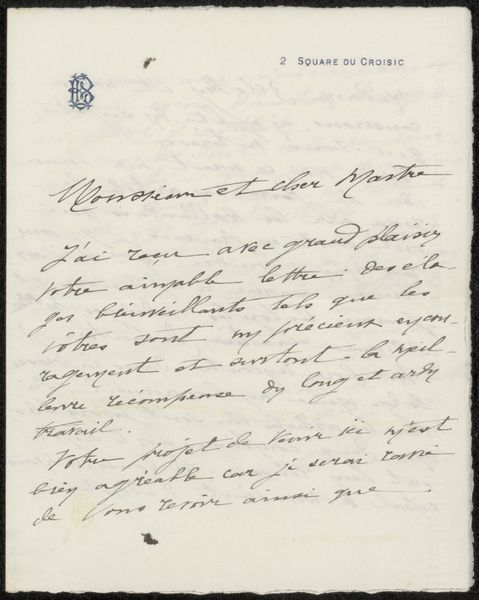 2 SQUARE DU CROISIC
Monsieur et cher Maître
J'ai reçu avec grand plaisir
votre aimable lettre ; des élo-
ges bienveillants tels que les
vôtres sont un précieux encou-
ragement et surtout la meil-
leure récompense du long et ardu
travail.
Votre projet de venir ici m'est
bien agréable car je serai ravie
de vous revoir ainsi que